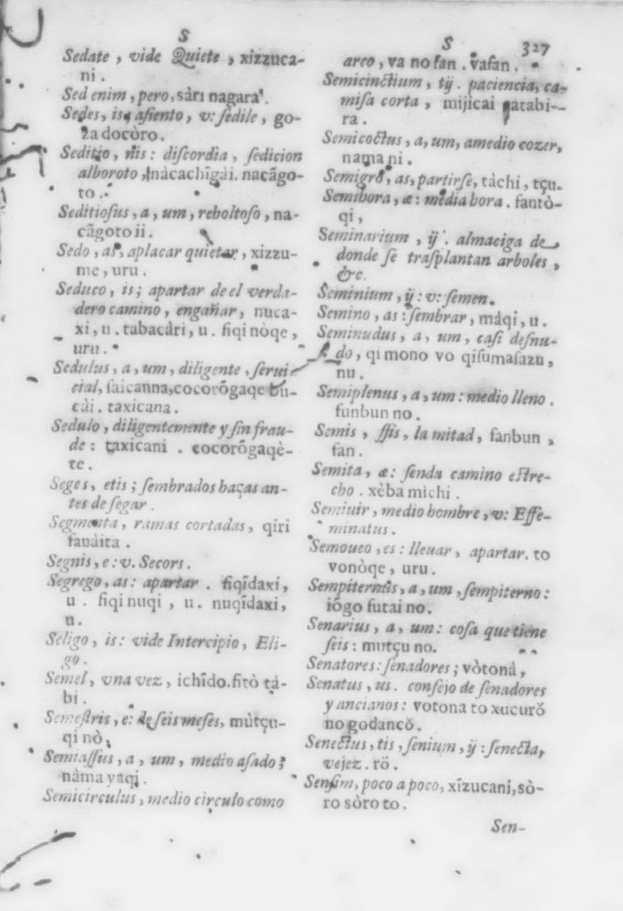 S
Sedate, vide Quiete, xizzuca-
ni.
Sed enim, pero, sàri nagara.
Sedes, is, aſiento, v: ſedile, go-
za docòro.
Seditio, nis: diſcordia, ſedicion
alboroto, nàcachigài. nacãgo-
to.
Seditioſus, a, um, reboltoſo, na-
cãgoto ii.
Sedo, as, aplacar quietar, xizzu-
me, uru.
Seduco, is; apartar de el verda-
dero camino, engañar, nuca-
xi, u. tabacàri, u. fiqi nòqe,
uru.
Sedulus, a, um, diligente, ſerui
cial, ſaicanna, cocorõgaqe bu-
cài. taxicana.
Sedulo, diligentemente y ſin frau-
de: taxicani. cocorõgaqè-
te.
Seges, etis; ſembrados baças an-
tes de ſegar.
Segmenta, ramas cortadas, qiri
fanàita.
Segnis, e: v. Secors.
Segrego, as: apartar. fiqĩdaxi,
u. fiqi nuqi, u. nuqĩdaxi,
u.
Seligo, is: vide Intercipio, Eli-
go.
Semel, vna vez, ichĩdo. fitò tá-
bi.
Semeſtris, e: de ſeis meſes, mùtçu-
qi nò.
Semiaſſus, a, um, medio aſado;
nàma yaqi.
Semicirculus, medio circulo como
S 327
arco, va no fan. vaſan.
Semicinctium, tij. paciencia, ca-
miſa corta, mijicai catabi-
ra.
Semicoctus, a, um, amedio cozer,
nama ni.
Semigro, as, partirſe, tàchi, tçu.
Semihora, æ: media hora. fantò-
qi,
Seminarium, ij. almaciga de
donde ſe traſplantan arboles,
&c.
Seminium, ij: v: ſemen.
Semino, as: ſembrar, màqi, u.
Seminudus, a, um, caſi deſnu-
do, qi mono vo qiſumaſazu,
nu.
Semiplenus, a, um: medio lleno.
funbun no.
Semis, ſſis, la mitad, fanbun,
fan.
Semita, æ: ſenda camino eſtre-
cho. xèba michi.
Semiuir, medio hombre, v: Effe-
minatus.
Semoueo, es: lleuar, apartar. to
vonòqe, uru.
Sempiternus, a, um, ſempiterno:
iõgo futai no.
Senarius, a, um: coſa que tiene
ſeis: mutçu no.
Senatores: ſenadores; vòtonà,
Senatus, us. conſejo de ſenadores
y ancianos: votona to xucurǒ
no godancǒ.
Senectus, tis, ſenium, ij: ſenecta,
vejez. rǒ.
Senſim, poco a poco, xĩzucani, sò-
ro sòro to.
Sen-